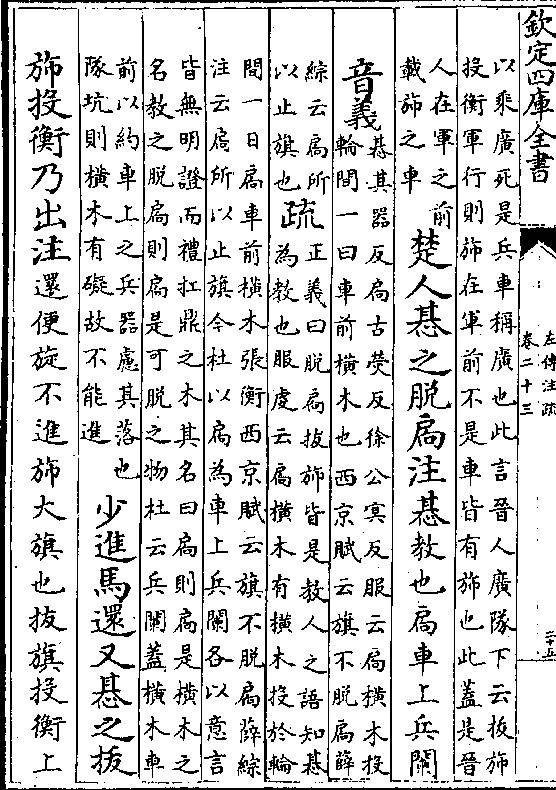 欽定四庫全書
左傳注疏
卷二十三
二十五
以乘廣死是兵車稱廣也此言晉人廣隊下云拔斾
投衡軍行則斾在軍前不是車皆有斾也此蓋是晉
人在軍之前
載斾之車
楚人惎之脫扃注惎教也扃車上兵闌
音義
惎其器反扃古熒反徐公冥反服云扃橫木投
輪間一曰車前橫木也西京賦云旗不脫扃薛
綜云扃所
以止旗也
疏
正義曰脫扃拔斾皆是教人之語知惎
為教也服虔云扃橫木有橫木投於輪
間一曰扃車前橫木張衡西京賦云旗不脫扃薛綜
注云扃所以止旗今杜以扃為車上兵闌各以意言
皆無明證而禮扛鼎之木其名曰扃則扃是橫木之
名教之脫扃則扃是可脫之物杜云兵闌蓋橫木車
前以約車上之兵器慮其落也
隊坑則橫木有礙故不能進
少進馬還又惎之拔
斾投衡乃出注還便旋不進斾大旗也拔旗投衡上